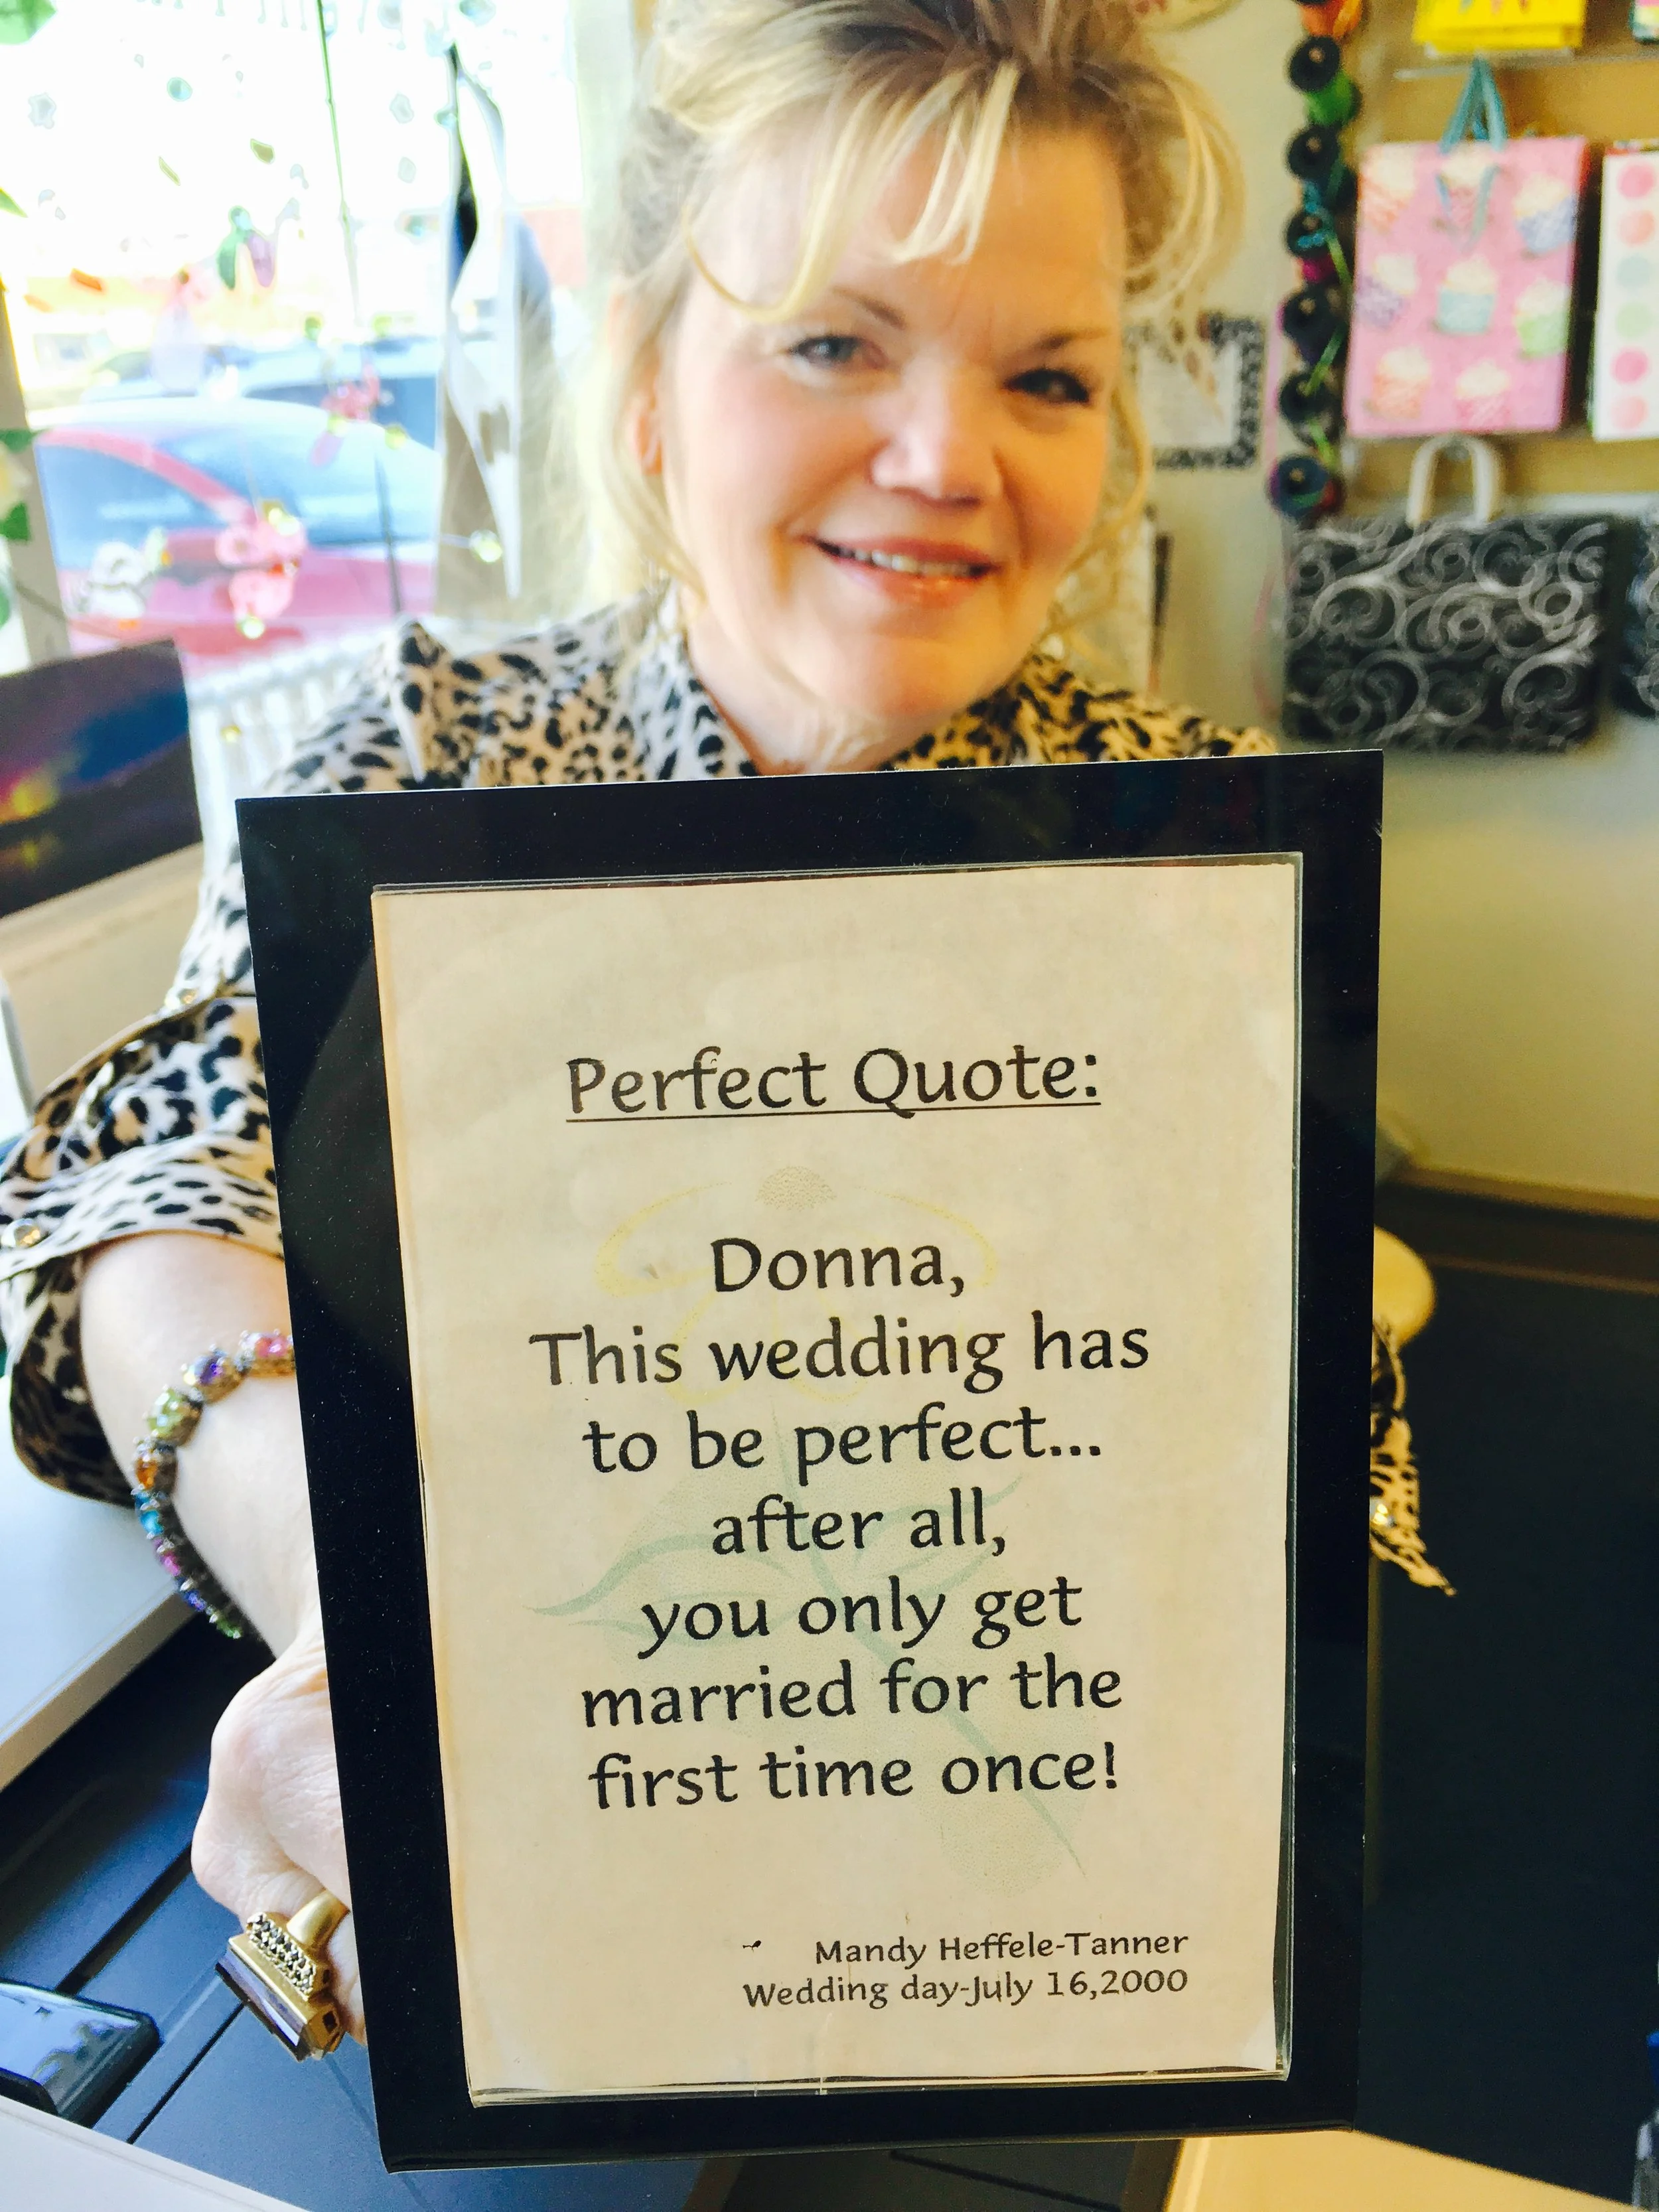 Perfect Quote:
Donna,
This wedding has
to be perfect...
after all,
you only get
married for the
first time once!
Mandy Heffele-Tanner
Wedding day-July 16,2000